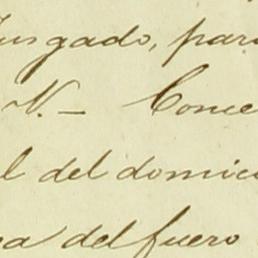 Jusgado, par
N.– Conce
l del domici
a del fuero